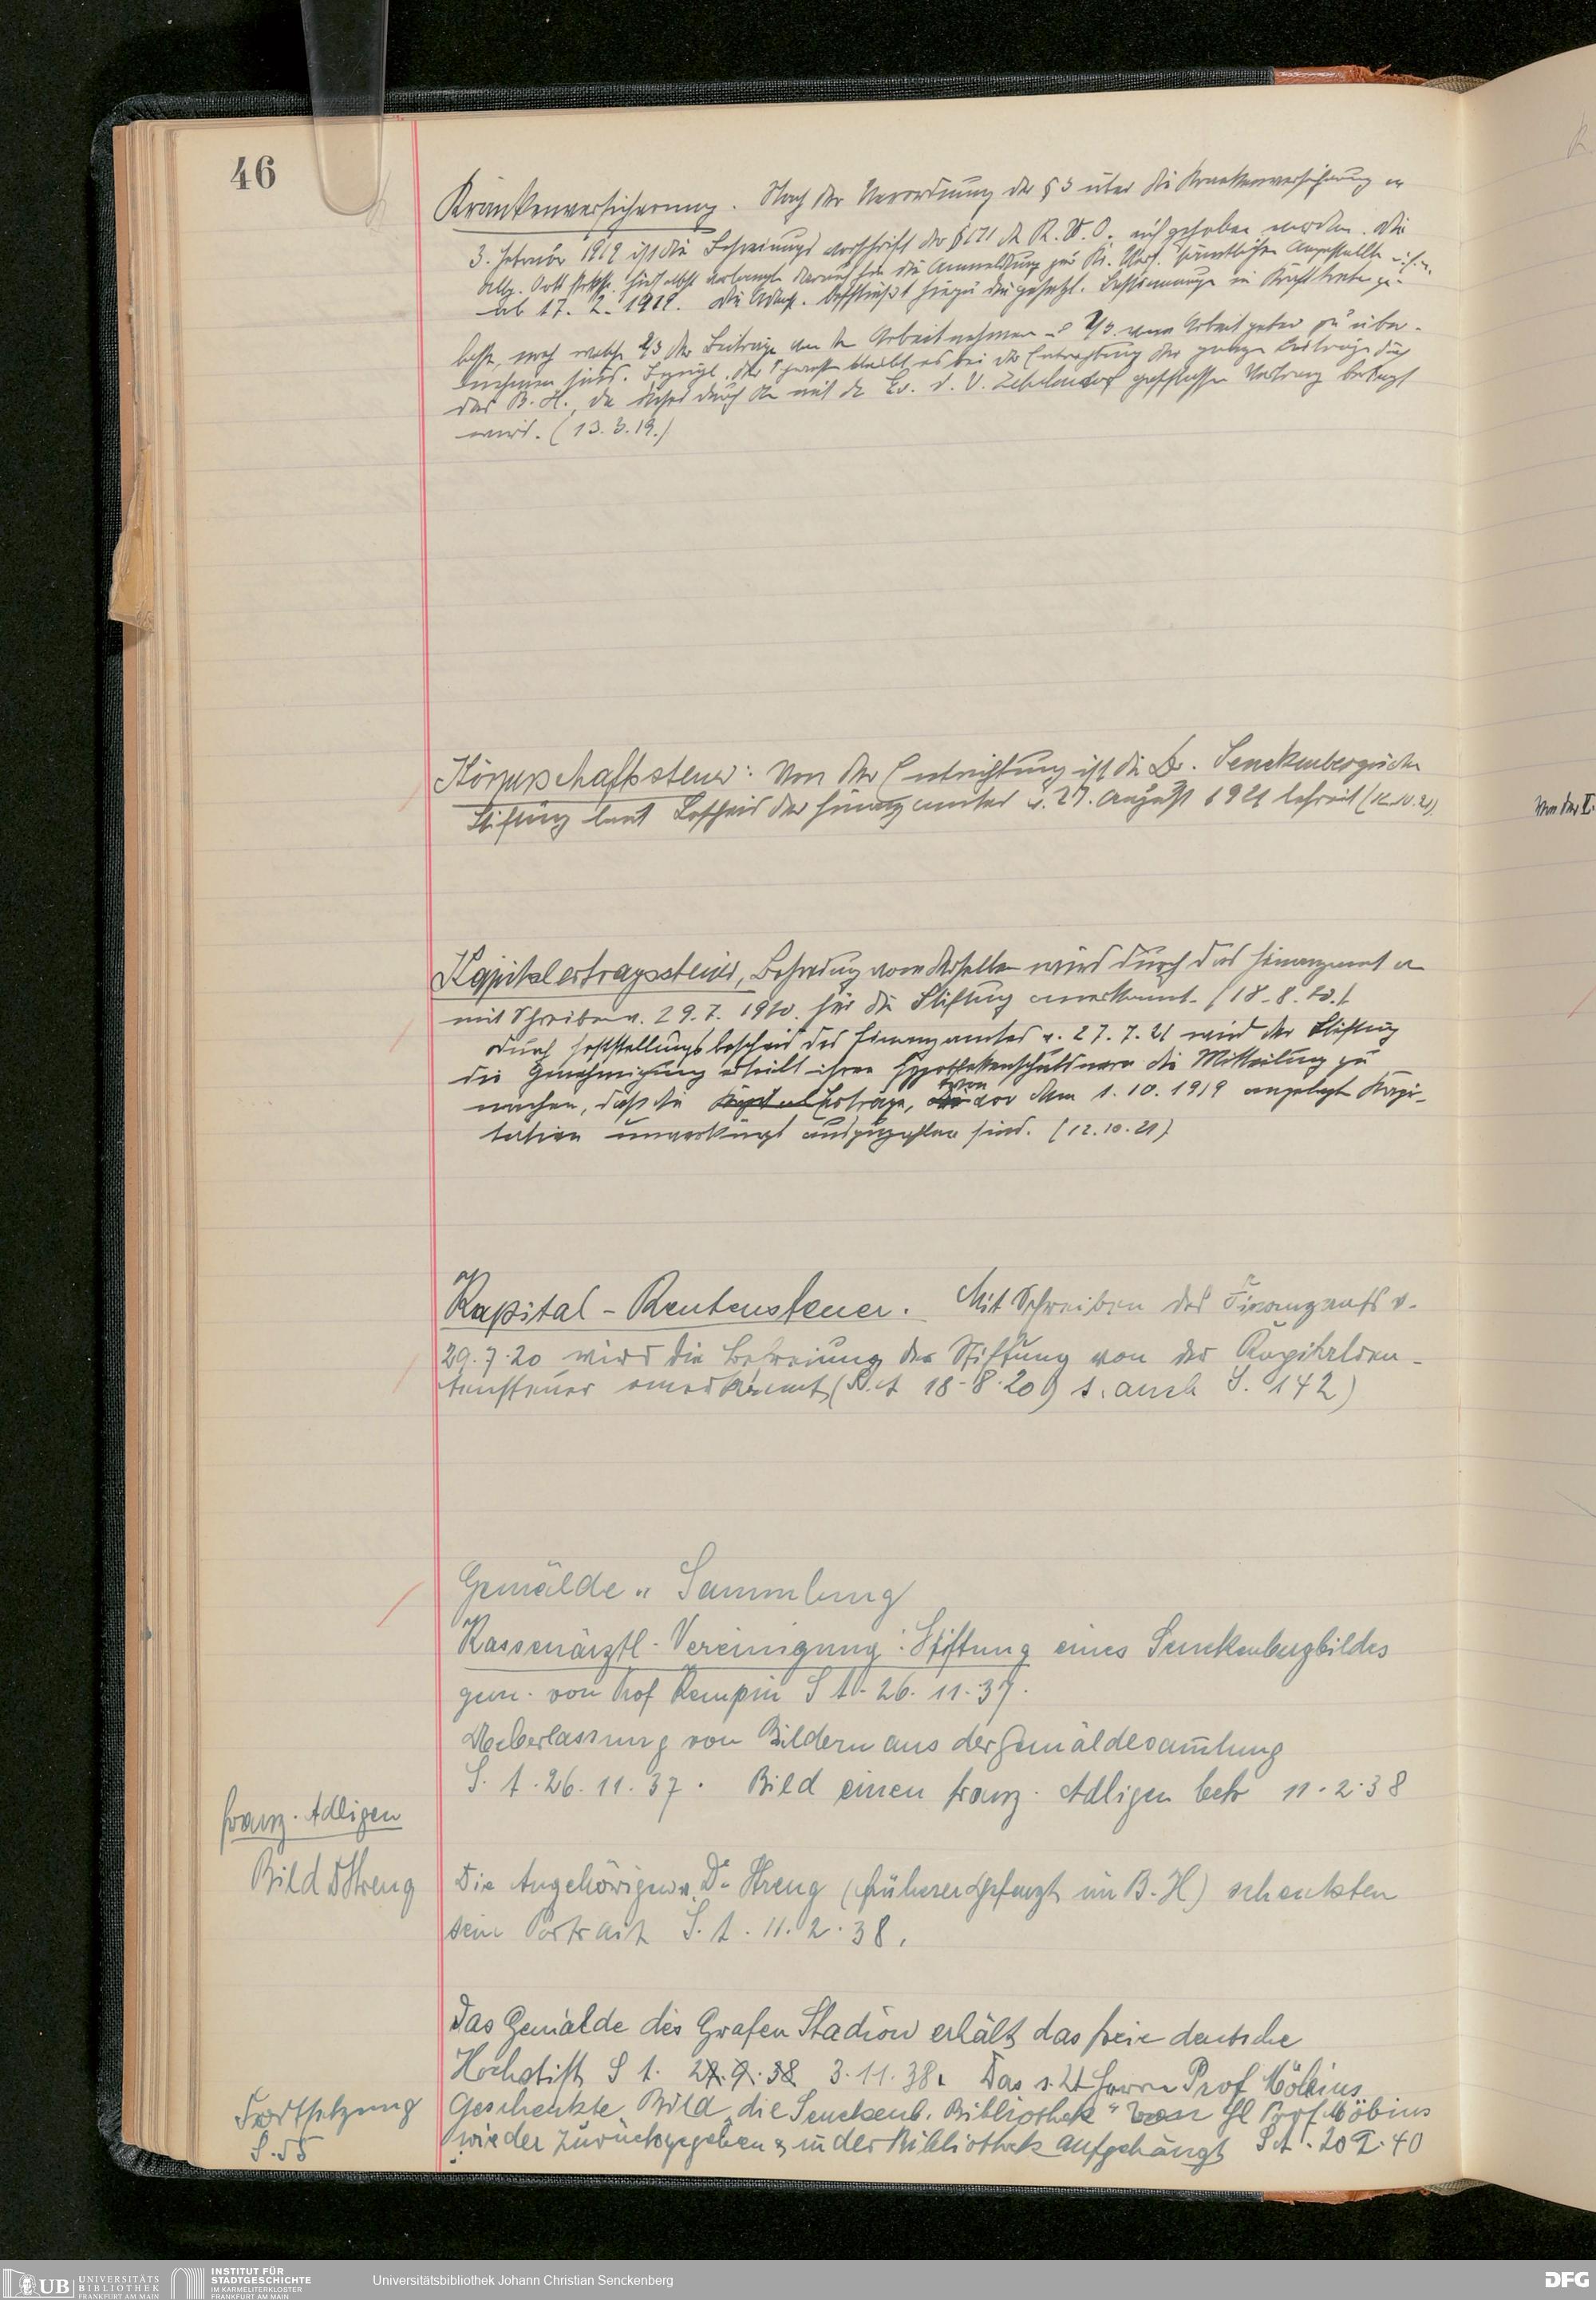 46
Krankenversicherung. Nach der Verordnung des § 3 über die Krankenversicherung v.
3. Februar 1919 ist die Befreiungsvorschrift des § 171 der R.V.O. aufgehoben worden. Die
Allg. Orts verlangte darauf hin die Anmeldung zur Kr. Vers. sämtlicher Angestellte
ab 17. 2. 1919. Die Adm. beschließt hiezu die gesetzl. Bestimmungen in Kraft treten zu
lassen, nach welchen 2/3 der Beiträge von den Arbeitnehmern u 1/3 vom Arbeitgeber zu über-
nehmen sind. Bezügl. der Schwestern bleibt es bei der Entrichtung der ganzen Beiträge durch
das B.H., da dieses durch den mit dem Ev. D. V. Zehlendorf geschlossenen Vertrag bedingt
wird. (13.3.19.)
Körperschaftssteuer: Von der Entrichtung ist die Dr. Senckenbergische
Stiftung laut Bescheid des Finanzamtes v. 27. August 1921 befreit (12.10.21)
Kapitalertragssteuer, Befreiung von derselben wird durch das Finanzamt
mit Schreiben v. 29.7.1920 für die Stiftung anerkannt. (18.8.20.)
Durch Feststellungsbescheid des Finanzamtes v. 27.7.21 wird der Stiftung
die Genehmigung erteilt ihren Hypothekenschuldnern die Mitteilung zu
machen, daß die Kapital Erträge, von vor dem 1.10.1919 angelegten Kapi-
talien unverkürzt auszuzahlen sind. (12.10.21)
Kapital-Rentensteuer. Mit Schreiben des Finanzamts v.
29.7.20 wird die Befreiung der Stiftung von der Kapitalren-
tensteuer anerkannt (S.A 18.8.20) s. auch S. 142)
Gemälde-Sammlung
Kassenärztl-Vereinigung: Stiftung eines Senckenbergbildes
gem. von Prof Kempin S A. 26.11.37.
Ueberlassung von Bildern aus der Gemäldesam̅lung
S. A. 26.11.37. Bild einen franz. Adligen betr 11.2.38
franz. Adligen
Bild D Streng
Die Angehörigen v. Dr Streng (früherer Chefarzt im B.H) schenkten
sein Portrait S. A. 11.2.38.
Das Gemälde des Grafen Stadion erhält das freie deutsche
Hochstift S A. 27.9.38 3.11.38. Das s. Zt Herrn Prof Möbius
Fortsetzung
S. 55
Geschenkte Bild "die Senckenb. Bibliothek" von Hl Prof Möbius
wieder zurückgegeben & in der Bibliothek aufgehängt S A. 20 2.40
Von der
UB UNIVERSITÄTS
BIBLIOTHEK
FRANKFURT AM MAIN
INSTITUT FÜR
STADTGESCHICHTE
IM KARMELITERKLOSTER
FRANKFURT AM MAIN
Universitätsbibliothek Johann Christian Senckenberg
DFG